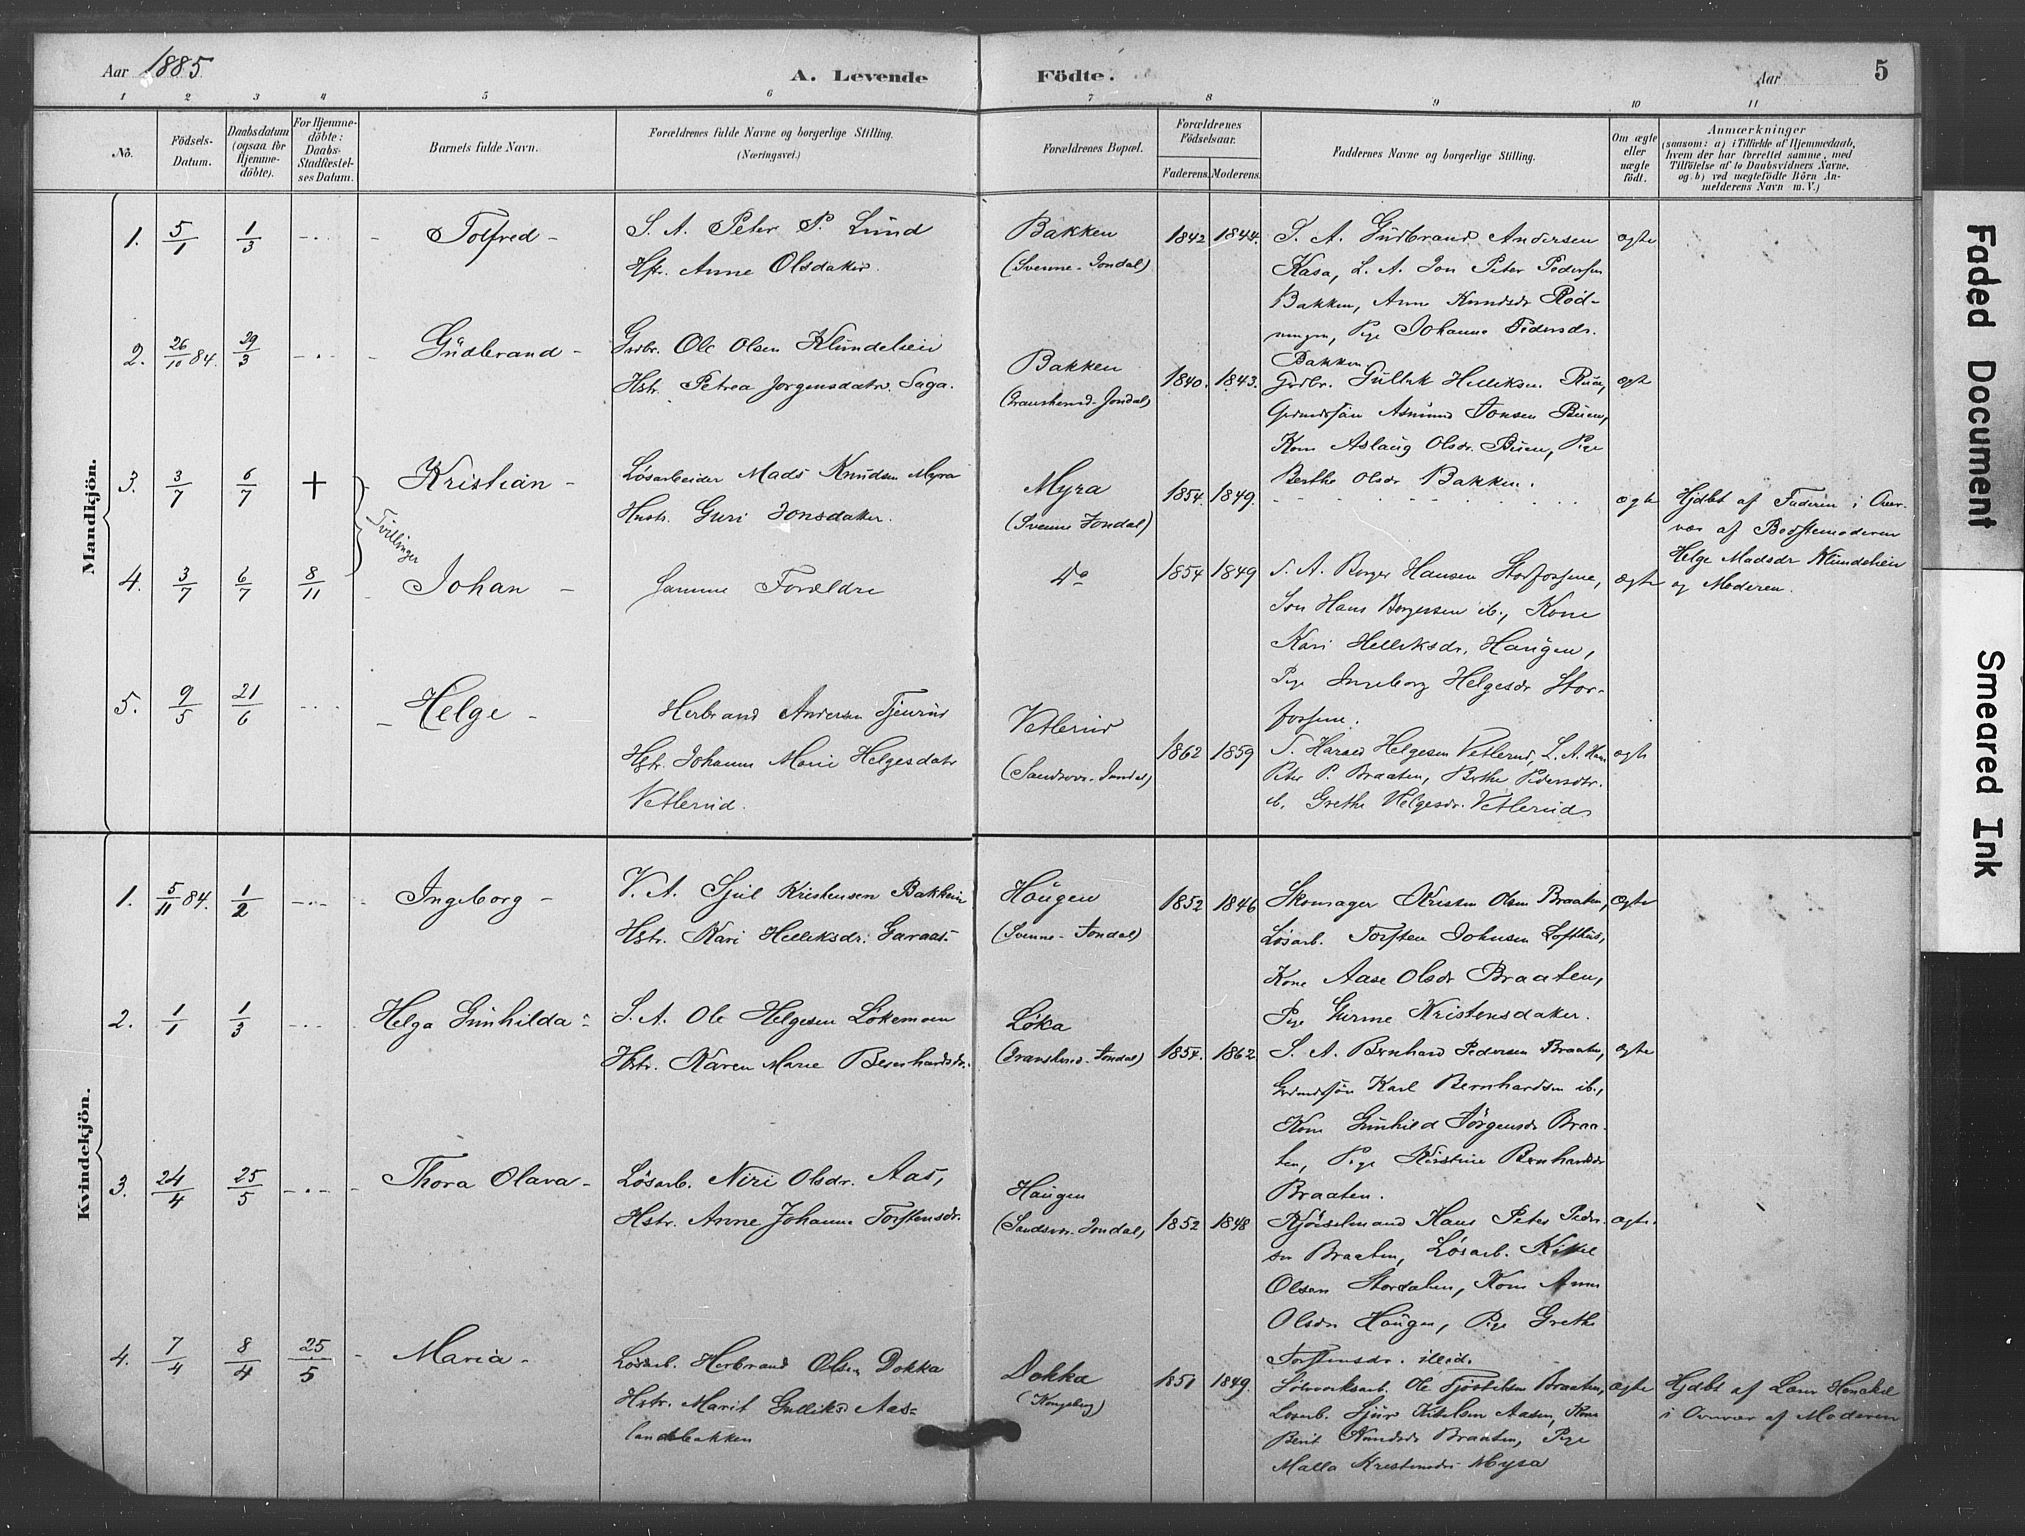 Aar 1885
A. Levende Födte.
Aar
5
1 2 3 4 5 6 7 8 9 10 11
No.
Födsels-Datum.
Daabsdatum (ogsaa for Hjemme-döbte).
For Hjemme-döbte: Daabs-Stadfæstel-ses Datum.
Barnets fulde Navn.
Forældrenes fulde Navne og borgerlige Stilling. (Næringsvei.)
Forældrenes Bopæl.
Forældrenes Födselsaar.
Faderens. Moderens.
Faddernes Navne og borgerlige Stilling.
Om ægte eller uægte födt.
Anmærkninger
(saasom: a) i Tilfælde af Hjemmedaab,
hvem der har forrettet samme, med
Tilföielse af to Daabsvidners Navne.
og b) ved uægtefödte Börn An-
melderens Navn m. V.)
Mandkjön.
1. 5/1 1/3 Tolfred
S. A. Peter P. Lund
Hstr. Anne Olsdatter.
Bakken
(Svenne-Jondal)
1842 1844.
S. A. Gudbrand Andersen
Kasa, L. A. Jon Peter Pedersen
Bakken, Anne Knudsdr
Pige Johanne Pedersdr.
Bakken
ægte
2. 26/10 84. 29/3 Gudbrand
Grdbr. Ole Olsen Klundeheien
Hstr. Petrea Jørgensdatr Saga.
Bakken
(Transherad-Jondal)
1840. 1843.
Grdbr. Gullik Helliksen
Grdmdssøn Asmund Jonsen Buen,
Kone Aslaug Olsdr. Buen, Pige
Berthe Olsdr Bakken.
ægte
3. 3/7 6/7 + Kristian
Løsarbeider Mads Knudsen Myra
Hustr. Guri Jonsdatter.
Myra
(Svenne Jondal)
1854. 1849.
ægte
Hjdbt af Faderen i Over-
vær af Bedstemoderen
Helge Madsdr Klundeheien
og Moderen.
Tvillinger
4. 3/7 6/7 8/11 Johan
Samme Forældre
Do
1854 1849
S. A. Borger Hansen Storfossene,
Søn Hans Borgersen ib., Kone
Kari Helliksdr. Haugen,
Pige Ingeborg Helgesdr Stor-
fossene.
ægte
5. 9/5 21/6 Helge
Herbrand Andersen Tjenrud
Hstr. Johanne Marie Helgesdatr
Vetlerud.
Vetlerud
(Sandsvær-Jondal)
1862 1859
S. Harald Helgesen Vetlerud, L. A. Hans
Peter P. Braaten, Berthe Pedersdtr.
ib. Grethe Helgesdr. Vetlerud
ægte
Kvindekjön.
1. 5/11 84. 1/2 Ingeborg
V. A. Sjul Kristensen Bakken
Hstr. Kari Helliksdr. Garaas
Haugen
(Svenne-Jondal)
1852 1846
Skomager Kristen Olsen Braaten,
Løsarb. Torsten Johnsen Lofthus,
Kone Aase Olsdr Braaten,
Pige Gurine Kristensdatter.
ægte
2. 1/1 1/3 Helga Gunhilda
S. A. Ole Helgesen Løkemoen
Hstr. Karen Marie Bernhardsdr.
Løka
(Transherad-Jondal)
1854. 1862
S. A. Bernhard Pedersen Braaten,
Grdmdssøn Karl Bernhardsen ib.,
Kone Gunhild Jørgensdr Braa-
ten, Pige Kirstine Bernhardsdr
Braaten.
ægte
3. 24/4 25/5 Thora Olava
Løsarb. Niri Olsdr. Aas,
Hstr. Anne Johanne Torstensdr.
Haugen
(Sandsvær-Jondal)
1852 1848
Hans Peter Peder-
sen Braaten, Løsarb. Kittel
Olsen Stordalen, Kone Anne
Olsdr Haugen, Pige Grethe
Torstensdr. ibid.
ægte.
4. 7/4 8/4 25/5 Maria
Løsarb. Herbrand Olsen Dokka
Hstr. Marit Gulliksdr Aas-
landsbakken
Dokka
(Kongsberg)
1851 1849.
Sølvverksarb. Ole Tjøstelsen Braaten,
Løsarb. Sjur Kittelsen Aasen, Kone
Berit Knudsdr Braaten, Pige
Malla Kristensdr Myra
ægte
Hjdbt af Lærer Henckel
i Overvær af Moderen
Faded Document
Smeared Ink